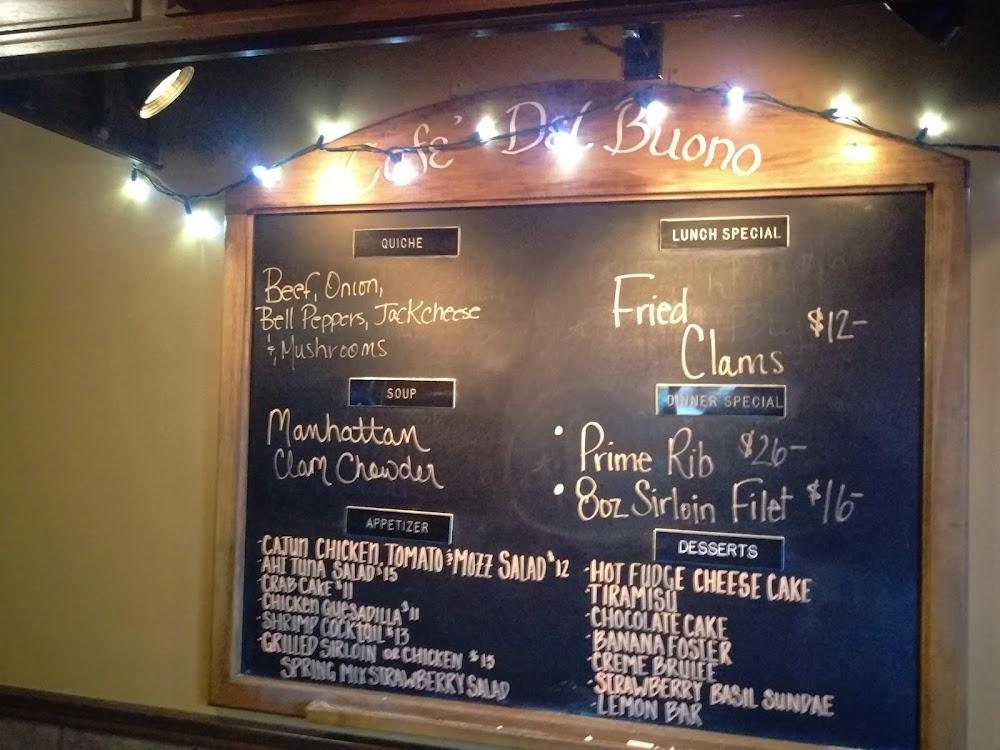 Café Del Buono
QUICHE
Beef, Onion,
Bell Peppers, Jackcheese
&, Mushrooms
SOUP
Manhattan
Clam Chowder
APPETIZER
-CAJUN CHICKEN TOMATO & MOZZ SALAD $12
-AHI TUNA SALAD $15
-CRAB CAKE $11
-CHICKEN QUESADILLA $11
-SHRIMP COCKTAIL $13
-GRILLED SIRLOIN OR CHICKEN $15
SPRING MIX STRAWBERRY SALAD
LUNCH SPECIAL
Fried
Clams $12-
DINNER SPECIAL
• Prime Rib $26-
• 8oz Sirloin Filet $16-
DESSERTS
-HOT FUDGE CHEESE CAKE
-TIRAMISU
-CHOCOLATE CAKE
-BANANA FOSTER
-CREME BRULEE
-STRAWBERRY BASIL SUNDAE
-LEMON BAR